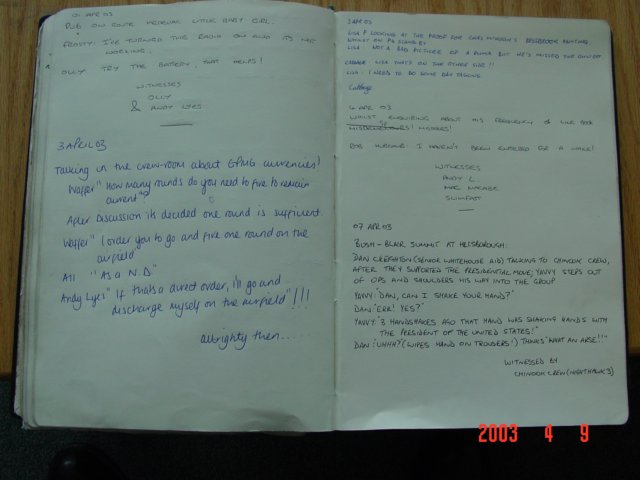 01 APR 03
PUB ON ROUTE MEDEVAC LITTLE BABY GIRL.
FROSTY: I'VE TURNED THIS RADIO ON AND ITS NOT
WORKING.
OLLY TRY THE BATTERY, THAT HELPS!
WITNESSES
OLLY
& ANDY LYES
3 APRIL 03
Talking in the crew-room about GPMG currencies!
Waffer "How many rounds do you need to fire to remain
current"?
After Discussion its decided one round is sufficient.
Waffer "I order you to go and fire one round on the
airfield"
All "As a N.D."
Andy Lyes "If thats a direct order, i'll go and
discharge myself on the airfield"!!!
alrighty then.....
2 APR 03
LISA P LOOKING AT THE PROOF FOR BESSBROOK PAINTING
WHILST ON PA STAND BY
LISA : NOT A BAD PICTURE OF A PUMA BUT HE'S MISSED THE
LISA THAT'S ON THE OTHER SIDE!!
LISA : I NEED TO DO SOME DAY TASKING
Cabbage
4 APR 03
WHILST ENQUIRING ABOUT HIS FREQUENCY OF LINE BOOK
MISDEMEANOURS!
ROB : I HAVEN'T BEEN ENTERED FOR A WHILE!
WITNESSES
ANDY L.
MAC
SLIMFAST
07 APR 03
BUSH-BLAIR SUMMIT AT HILLSBOROUGH:
DAN CREIGHTON (SENIOR WHITEHOUSE AID) TALKING TO CHINOOK CREW,
AFTER THEY SUPPORTED THE PRESIDENTIAL MOVE; YAVVY STEPS OUT
OF OPS AND SHOULDERS HIS WAY INTO THE GROUP
YAVVY: 'DAN, CAN I SHAKE YOUR HAND?'
DAN: 'ERR! YES?'
YAVVY: '3 HANDSHAKES AGO THAT HAND WAS SHAKING HANDS WITH
THE PRESIDENT OF THE UNITED STATES!'
DAN: 'UHHH?' (WIPES HAND ON TROUSERS!) THINKS 'WHAT AN ARSE!!'
WITNESSED BY
CHINOOK CREW (NIGHTHAWK 3)
2003 4 9